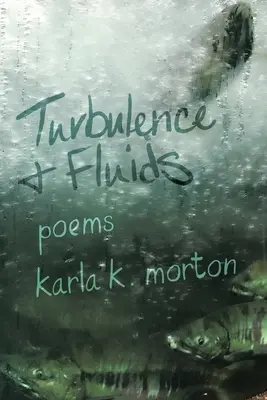 Turbulence
& Fluids
poems
karla k. morton